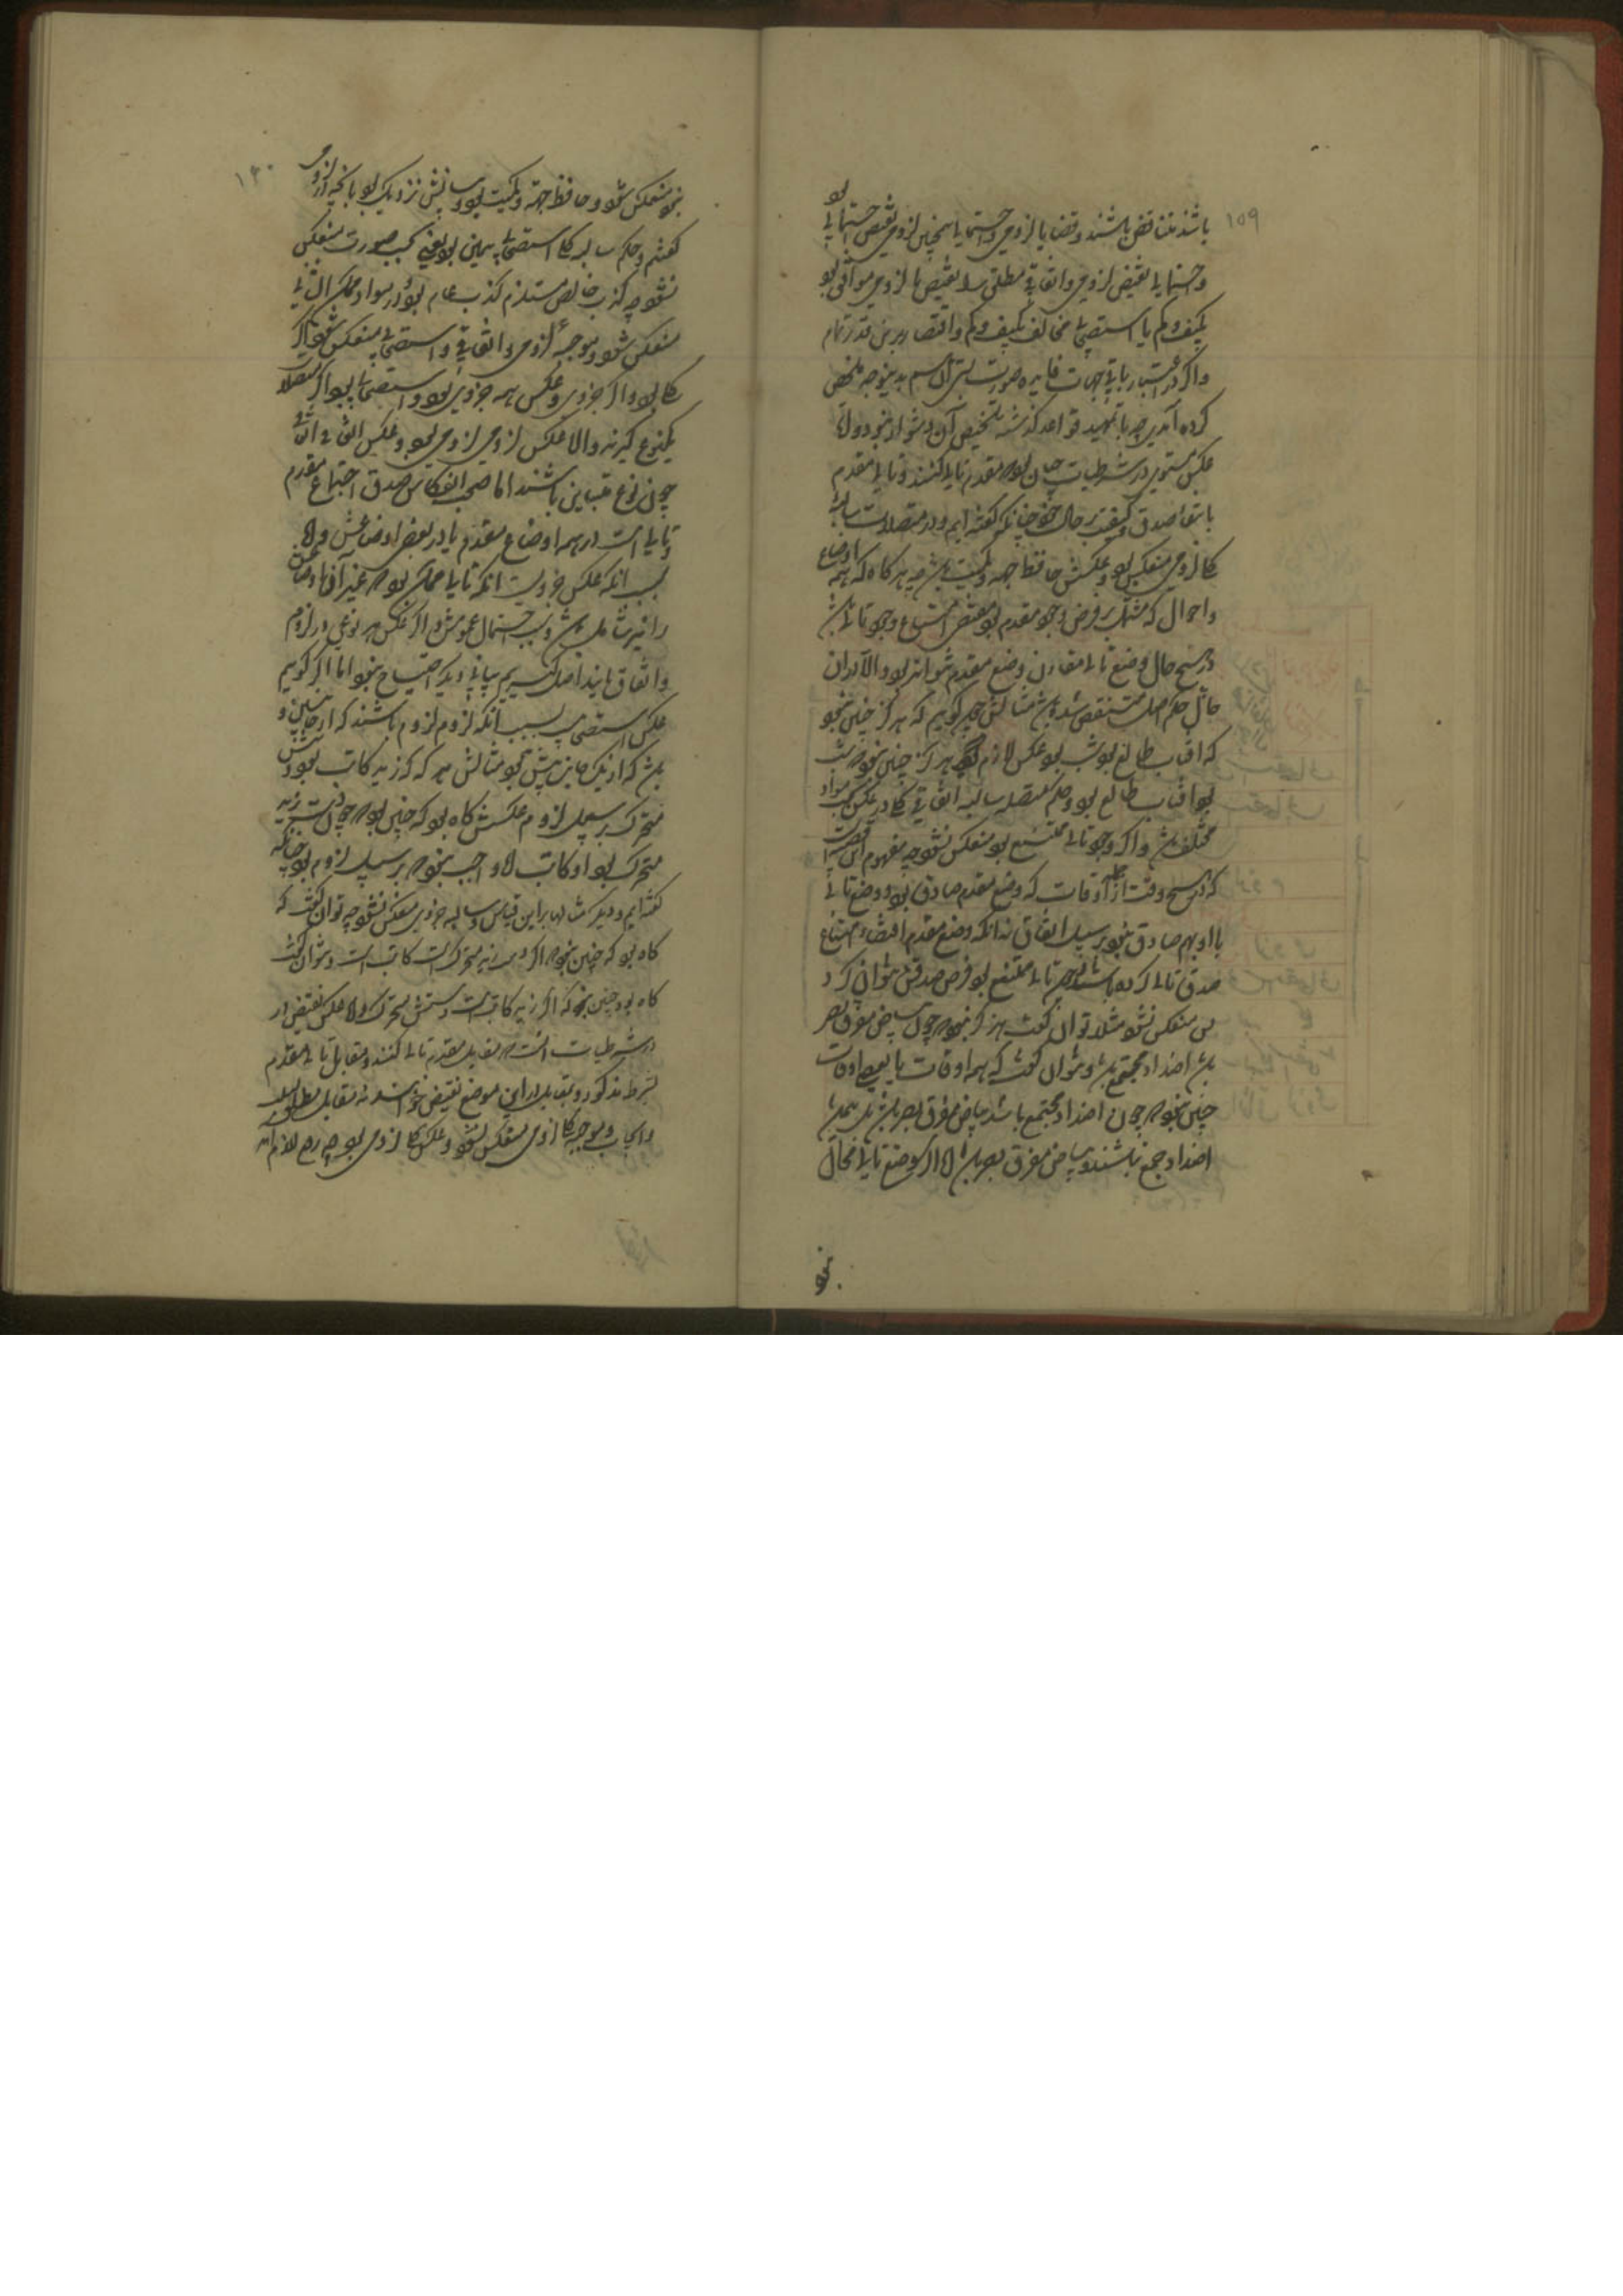 ۱۵۹
باشند متناقض باشند و قضایا لزومی و احتمالی همچنین لزومی نقیض احتمالی بو
و احتمالی نقیض لزومی و اتفاقی مطلق را نقیض یا لزومی موافق بو
بکیف و کم یا استصحابی مخالف بکیف و کم و اقتصار برین قدر تمام
و اگر در اعتبار باقی جهات فایده صورت بندد آن قسم بدینوجه ملخص
کرده آید چه با تمهید قواعد گذشته تلخیص آن دشوار نبود و اما
عکس مستوی در شرطیات چنان بود که مقدم تالی کنند و تالی مقدم
با بقاء صدق و کیفیت بر حال خود چنانکه گفته‌ایم و در متصلات سالبه
کلی لزومی منعکس بود و عکسش حافظ جهت و کمیت باشد چه هرگاه که همه اوضاع
و احوال که مشتمل بر فرض وجود مقدم بو مقتضی امتناع وجود تالی باشد
در هیچ حال وضع تالی مقارن وضع مقدم نتواند بود و الا در آن
حال حکم اصل منتقض شده باشد مثالش چون گوییم که هرگز چنین نبو
که آفتاب طالع بو شب بو عکس لازم هرگز چنین نبود که شب
بو آفتاب طالع بو و حکم متصله سالبه اتفاقی کلی در عکس بحسب مواد
مختلف باشد و اگر وجود تالی ممتنع بو منعکس نشود چه مفهوم این قضیه
که در هیچ وقت از اوقات که وضع مقدم صادق بو وضع تالی
با او بهم صادق نبو بر سبیل اتفاق نه آنکه وضع مقدم اقتضاء امتناع
صدق تالی کرده باشد چون تالی ممتنع بو فرض صدقش نتوان کرد
پس منعکس نشود مثلا توان گفت هرگز نبود که چون بیاض مفرق بصر
باشد اضداد مجتمع باشد و نتوان گفت که همه اوقات یا بعضی اوقات
چنین نبود که چون اضداد مجتمع باشد بیاض مفرق بصر باشد بل همیشه
اضداد جمع نباشند و بیاض مفرق بصر باشد اما اگر وضع تالی محال
نبو
۱۶۰
نبو منعکس شود و حافظ جهت و کمیت بود و بیانش نزدیک بو بانچه در لزومی
گفتیم و حکم سالبه کلی استصحابی همین بو یعنی بحسب صورت منعکس
نشود چه کذب خاص مستلزم کذب عام نبود و در مواد ممکن التالی
منعکس شود و موجبه لزومی و اتفاقی و استصحابی منعکس شود اگر
کلی بود و اگر جزوی و عکس همه جزوی بود و استصحابی بود اگر متصلا
یکنوع گیرند و الا عکس لزومی لزومی نبود و عکس اتفاقی اتفاقی
چون نوع متباین باشند اما صحت انعکاس صدق اجتماع مقدم
و تالی است در همه اوضاع مقدم یا در بعض اوضاعش و اما
سبب آنکه عکس جزویست آنکه تالی ممکن بود که غیر آن اوضاع
را نیز شامل باشد و بسبب احتمال عمومش و اگر عکس هر نوعی در لزوم
و اتفاق مانند اصل گیریم بیانی دیگر احتیاج نبو اما اگر گوییم
عکس استصحابی بسبب آنکه لزوم لزوم باشند که از جانبین و
باشد که از یک جانب بیش نبو مثالش هر که که زید کاتب بود دستش
متحرک بر سبیل لزوم عکسش گاه بو که چنین بود که چون دست زید
متحرک بو او کاتب اما واجب نبود که بر سبیل لزوم بو چنانکه
گفته‌ایم و دیگر مثالها برین قیاس و سالبه جزوی منعکس نشود چه توان گفت که
گاه بو که چنین نبود که اگر دست زید متحرک است کاتب است و نتوان گفت
گاه بود چنین نبود که اگر زید کاتب است دستش متحرک و اما عکس نقیض در
در شرطیات آنست که مقابل مقدم تالی کنند و مقابل تالی مقدم
بشرط مذکور و بتقابل در این موضع نقیض خواهند نه مقابل مطلق سلب
و ایجاب و موجبه کلی لزومی منعکس شود و عکسش کلی لزومی بود چه رفع لازم